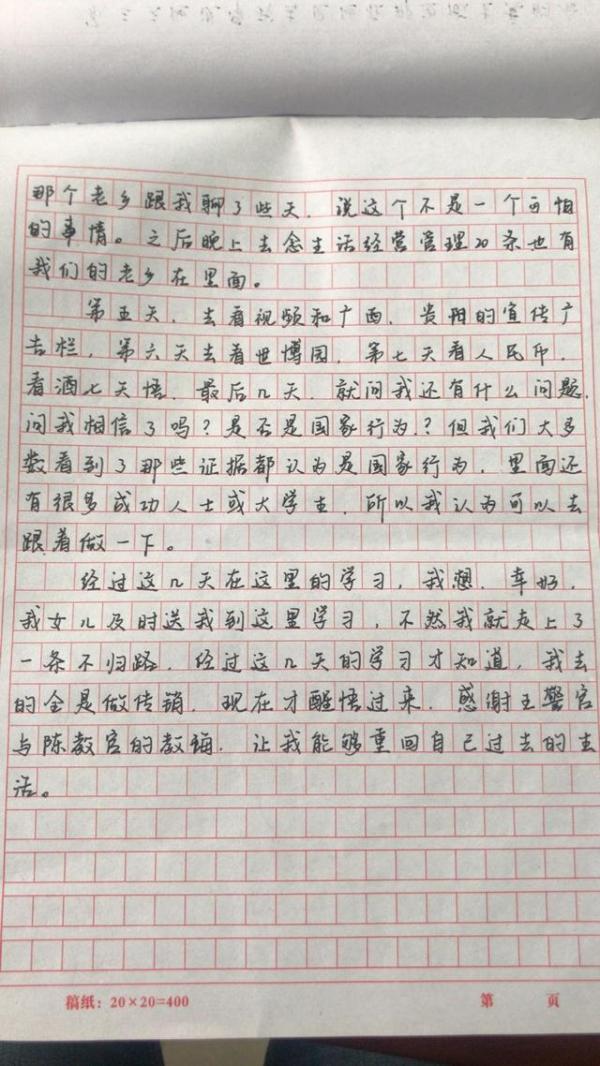 那个老乡跟我聊了些天.说这个不是一个可怕
的事情。之后晚上去念生活经营管理20条也有
我们的老乡在里面。
第五天.去看视频和广西.贵阳的宣传广
告栏.第六天去看世博园.第七天看人民币.
看酒七天悟.最后几天.就问我还有什么问题.
问我相信了吗?是否是国家行为.?但我们大多
数看到了那些证据都认为是国家行为.里面还
有很多成功人士或大学生.所以我认为可以去
跟着做一下。
经过这几天在这里的学习,我想.幸好.
我女儿及时送我到这里学习,不然我就走上了
一条不归路.经过这几天的学习才知道,我去
的全是做传销.现在才醒悟过来.感谢王警官
与陈教官的教诲.让我能够重回自己过去的生
活。
稿纸:20×20=400
第 页